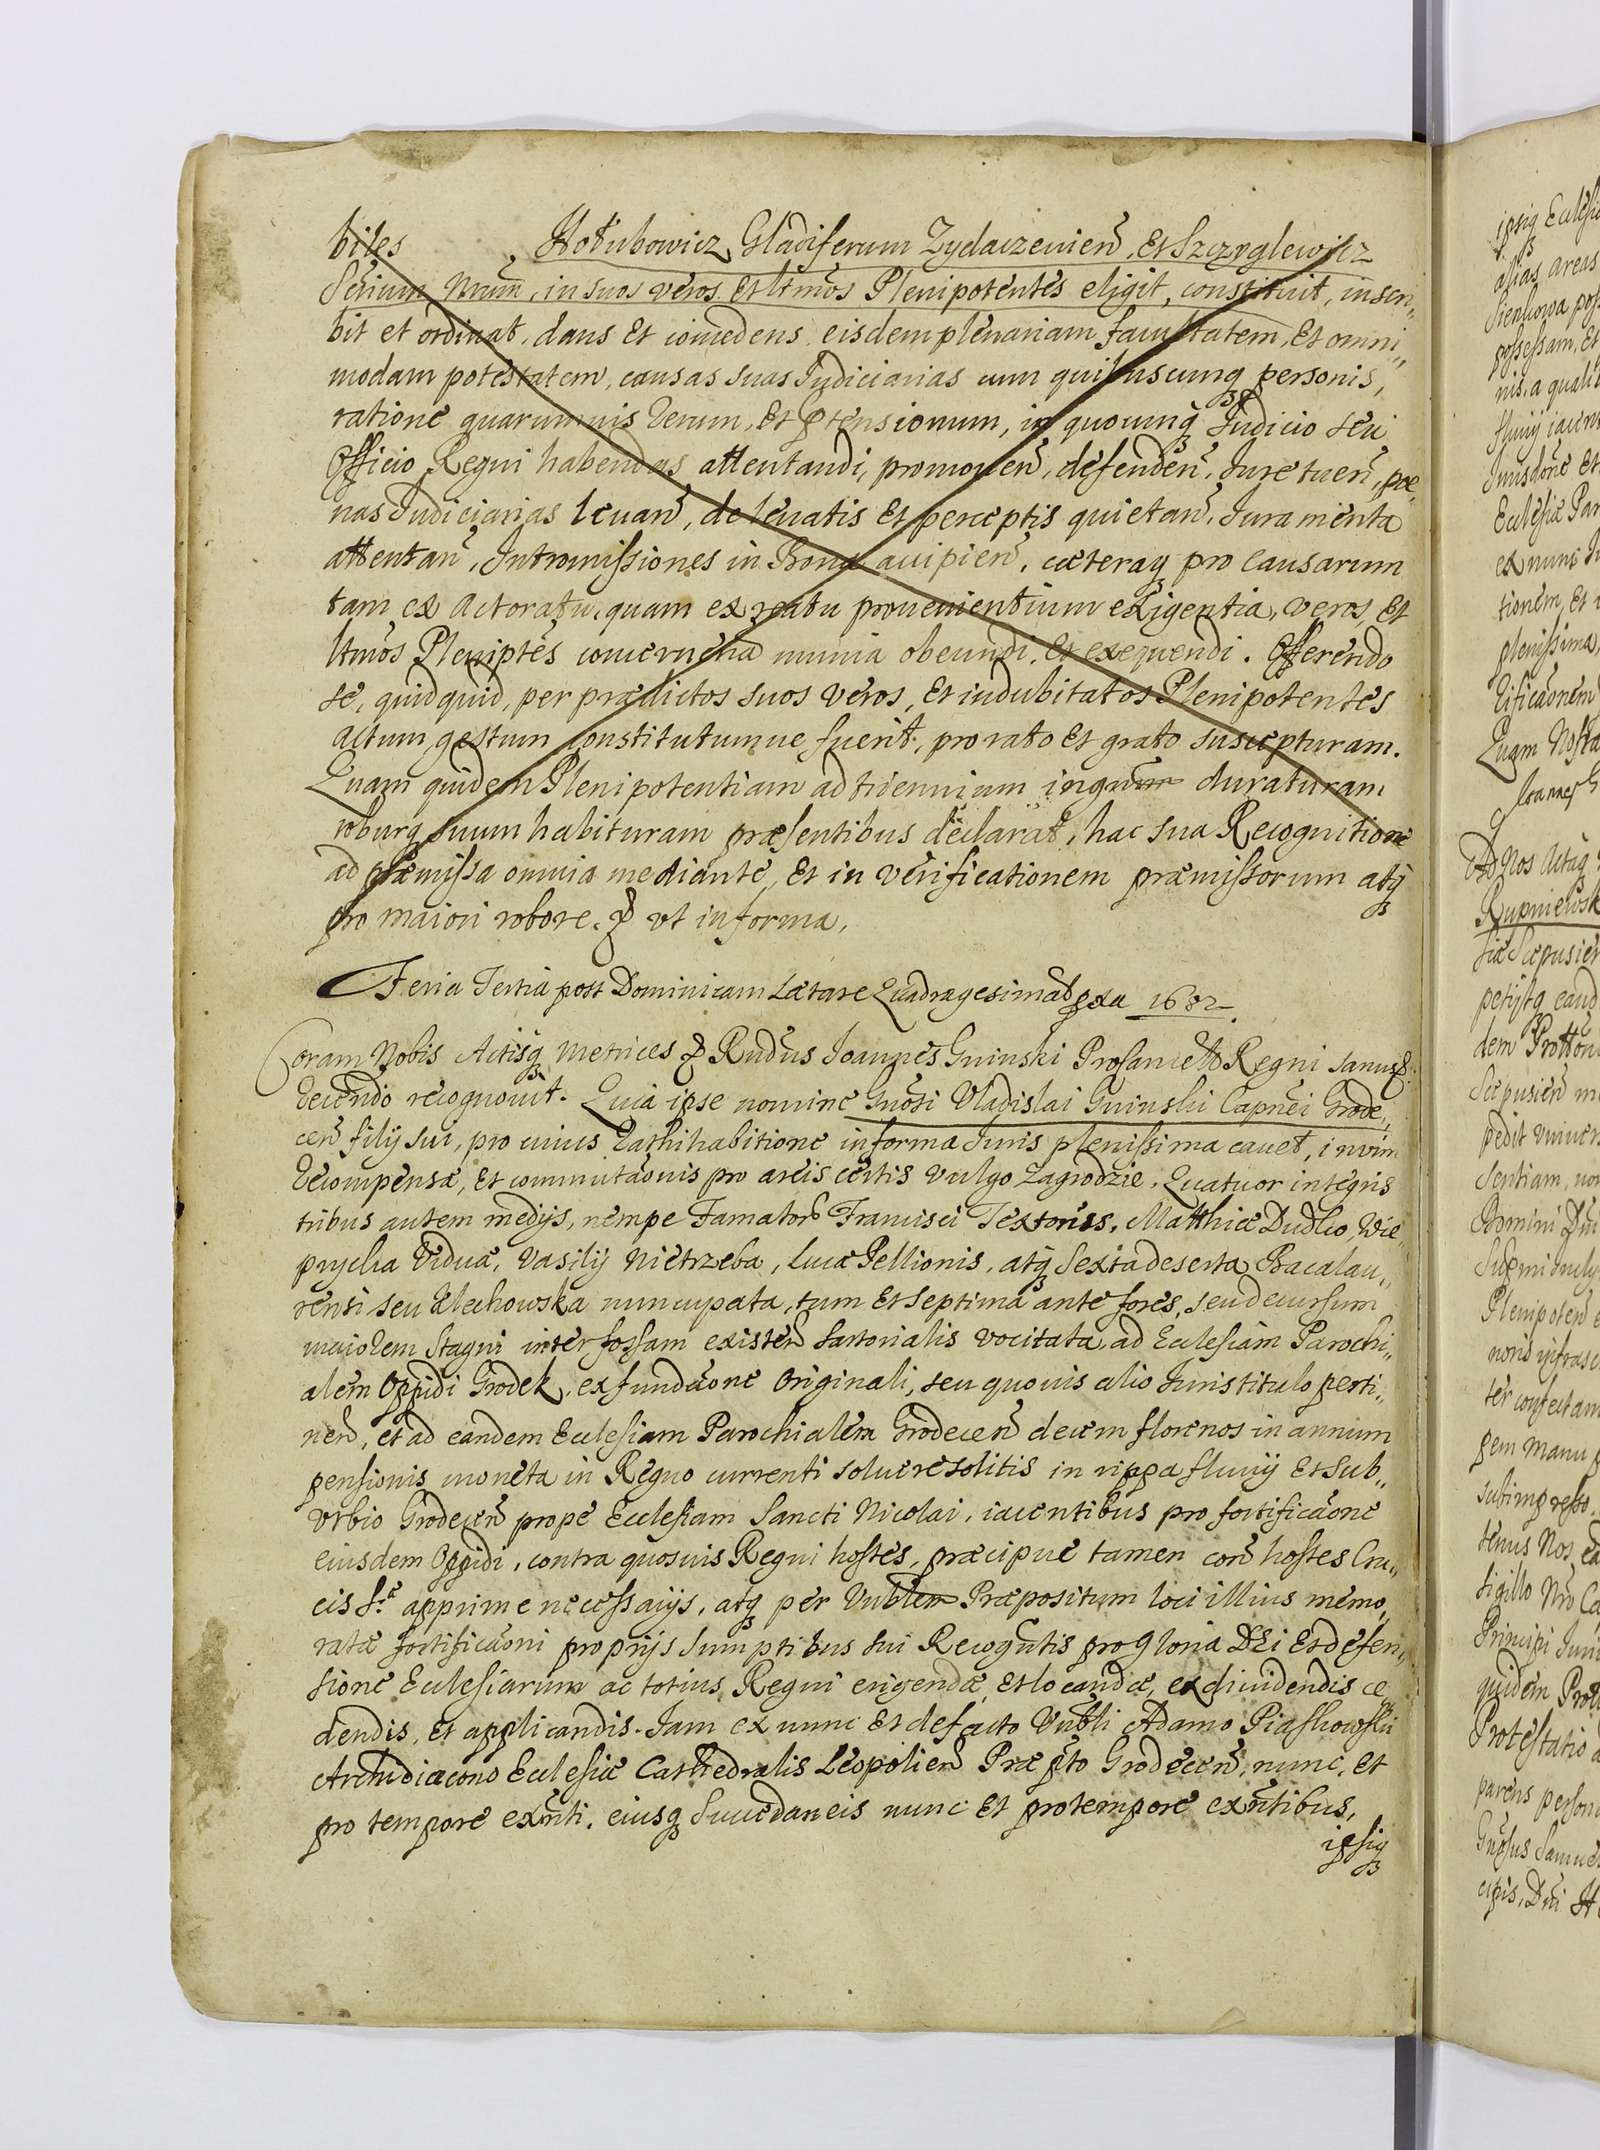 biles Hołubowicz Gladiferum Zydaczeuien, Et Szczyglewicz
Serium Nrum, in suos veros Et ltmos Plenipotentes eligit, constituit, inscri„
bit et ordinat, dans Et concedens eisdem plenariam facultatem, Et omni„
modam potestatem, causas suas Judiciarias cum quibuscunq personis,
ratione quarumuis rerum, Et ptensionum, in quocunq Judicio seu
Officio Regni habendas attentandi, promouen, defenden, Jure tuen, poe„
nas Judiciarias leuan, de leuatis Et perceptis quietan, Juramenta
attentan, Intromissiones in Bona accipien, caeteraq pro causarum
tam ex Actoratu, quam ex reatu prouenientium exigentia, veros, Et
ltmos Pleniptes concernentia munia obeundi, Et exequendi. Offerendo
se, quidquid, per praedictos suos veros, Et indubitatos Plenipotentes
actum, gestum constitutumue fuerit, pro rato Et grato suscepturam.
Quam quidem Plenipotentiam ad triennium duraturam
roburq suum habituram praesentibus declarat, hac sua Recognitione
ad praemissa omnia mediante, Et in verificationem praemissorum atq
pro maiori robore. & ut in forma.
Feria Tertia post Dominicam Laetare Quadragesimalem 1682
Coram Nobis Actisq Metrices & Rndus Joannes Gninski Procancells Regni sanus &
recendo recognouit. Quia ipse nomine Gnosi Vladislai Gninski Capnei Grode„
cen filij sui, pro cuius Rathihabitione in forma Juris plenissima cauet, in vim
recompensae, Et commutaonis pro areis certis vulgo Zagrodzie, Quatuor integris
tribus autem medijs, nempe Famator Francisci Textoris, Matthiae Dudko, Wie„
prycka Vidua, Vasilij Nietrzeba, Lucae Pellionis, atq sexta deserta Bacalau„
rensi seu Klechowska nuncupata, tum Et septima ante fores, seu decursum
maiorem Stagni inter fossam existen Sartorialis vocitata, ad Ecclesiam Parochi„
alem Oppidi Grodek, ex fundaone Originali, seu quouis alio Juris titulo perti„
nen, et ad eandem Ecclesiam Parochialem Grodecen decem florenos in annum
pensionis moneta in Regno currenti soluere solitis in rippa fluuij Et sub„
urbio Grodecen prope Ecclesiam Sancti Nicolai, iacentibus pro fortificaone
eiusdem Oppidi, contra quosuis Regni hostes, praecipue tamen con hostes Cru„
cis S.ae apprime necessaijs, atq per Vnblem Praepositum loci illius memo„
ratae fortificaoni proprijs sumptibus sui Recogntis pro gloria DEi Et defen„
sione Ecclesiarum ac totius Regni erigendae, Et locandae, ex diuidendis ce„
dendis, et applicandis. Jam ex nunc Et de facto Vnbli Adamo Piaskowski
Archidiacono Ecclesiae Cathedralis Leopolien Praepto Grodecen, nunc, Et
pro tempore exnti, eiusq Succedaneis nunc Et pro tempore exntibus,
ipsiq